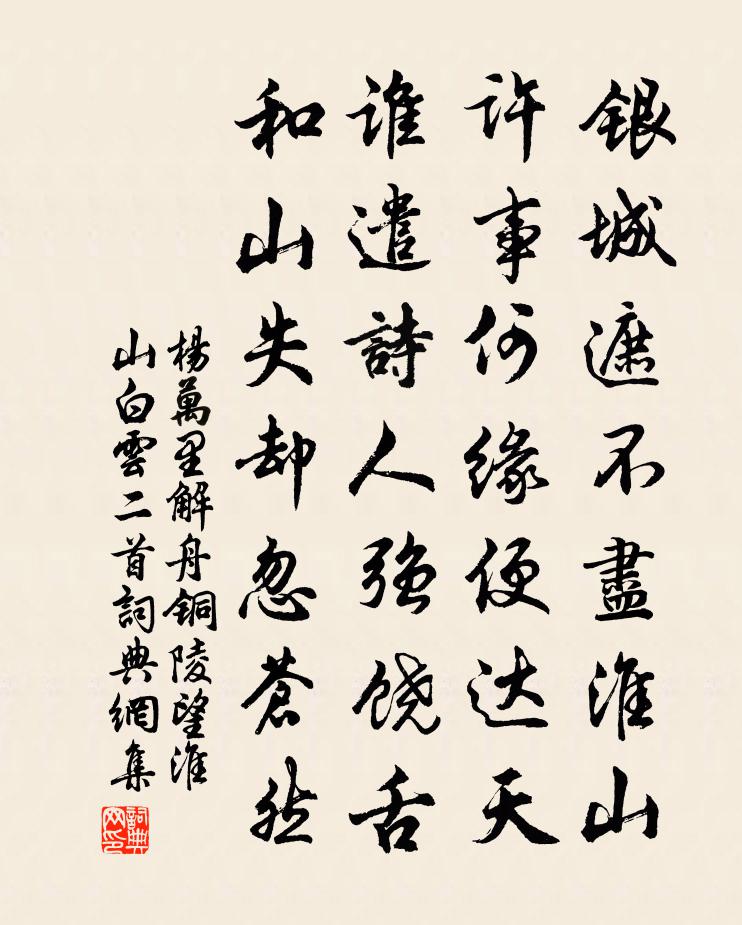 银城遮不盡淮山
许事何缘便达天
谁遣詩人强饶舌
和山失却忽蒼然
楊萬里解舟铜陵望淮
山白雲二首詞典網集
詞典
网印